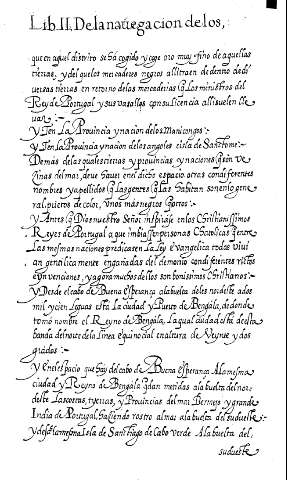 Lib. II, De la nauegacion de los,
que en aquel distrito se há cogido y coge oro muy fino de aquellas
tierras, y del que los mercaderes negros alli traen de dentro de di
uersas tierras en retorno de las mercaderias q̃ los ministros del
Rey de Portugal y sus vasallos con su licencia alli suelen lle
uar:~
Y en La Prouincia y nacion de los Manicongos:~
Y en La Prouincia y nacion de los angoles e isla de Sanctome:~
Demas de las quales tierras y prouincias y naciones q̃ son ve
zinas del mar, deue hauer en el dicho espacio otras con diferentes
nombres y apellidos q̃ las gentes q̃ las habitan son en lo gene
ral prietos de color, unos mas negros q̃ otros:~
Y Antes q̃ Dios nuestro Señor inspirase en los Christianissimos
Reyes de Portugal a que imbiassen personas Catholicas q̃ entre
Las mesmas naciones predicasen La ley Euangelica todas viui
an gentilicamente engañadas del demonio con diferentes ritos
e inuenciones, y agora muchos de ellos son bonissimos Christianos:~
Y desde el cabo de Buena Esperança ala buelta del es nordeste ados
mil y cien leguas esta La ciudad y Puerto de Bengala, de donde
tomó nombre el Reyno de Bengala, La qual ciudad está de esta
banda del norte de la linea equinocial en altura de Veynte y dos
grados:~
Y en el espacio que hay del cabo de Buena Esperança Ala mesma
ciudad y Reyno de Bengala q̃dan metidas ala buelta del nor
deste Las costas, tyerras, y Prouincias del mar Bermejo y grande
India de Portugal, haziendo rostro al mar ala buelta del sudueste
Y desde la mesma Isla de Sanctiago de Cabo verde Ala buelta del,
sudueste